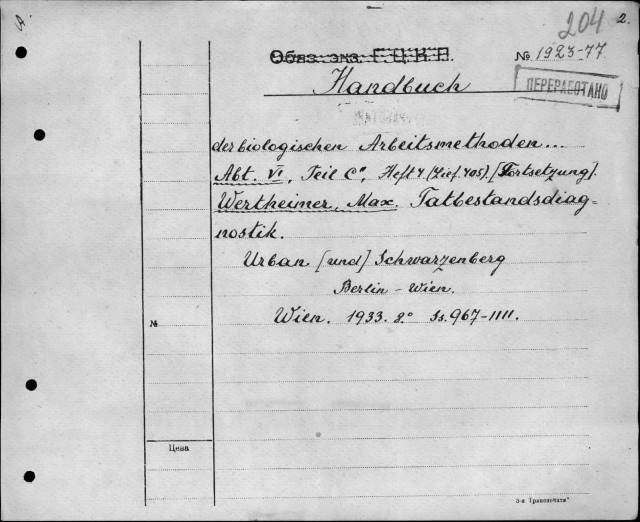 204
2.
Обяз. экз. Г.Ц.К.П.
№ 1923-77
Handbuch
ПЕРЕРАБОТАНО
der biologischen Arbeitsmethoden...
Abt. VI, Teil C", Heft 7 (Lief. 405). [Fortsetzung].
Wertheimer, Max. Tatbestandsdiag-
nostik.
Urban [und] Schwarzenberg
Berlin - Wien.
№ Wien. 1933. 8° Ss. 967-1111.
Цена